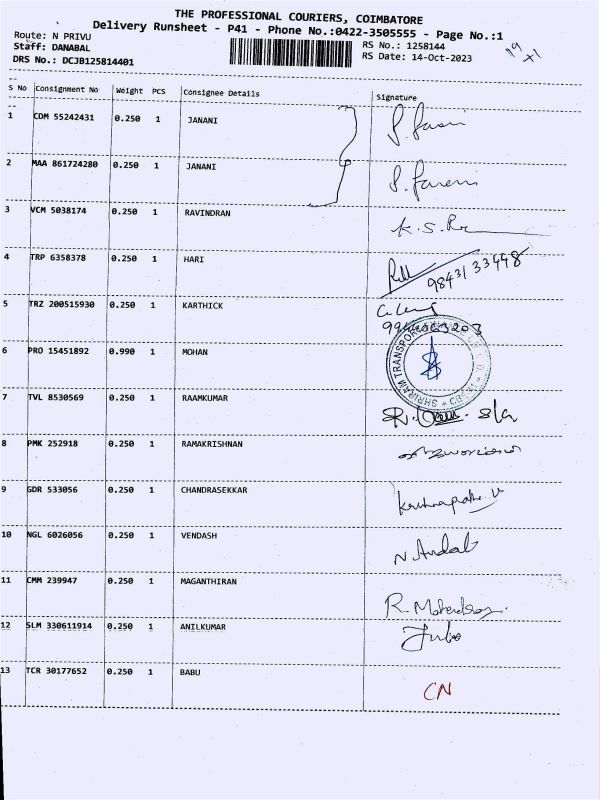 THE PROFESSIONAL COURIERS, COIMBATORE
Delivery Runsheet - P41 - Phone No.:0422-3505555 - Page No.:1
Route: N PRIVU
RS No.: 1258144
Staff: DANABAL
RS Date: 14-Oct-2023
DRS No.: DCJB125814401
S No Consignment No Weight PCS Consignee Details Signature
1 CDM 55242431 0.250 1 JANANI
2 MAA 861724280 0.250 1 JANANI
3 VCM 5038174 0.250 1 RAVINDRAN K.S.
4 TRP 6358378 0.250 1 HARI 98431 33448
5 TRZ 200515930 0.250 1 KARTHICK
6 PRO 15451892 0.990 1 MOHAN SHRIRAM TRANSPORT
7 TVL 8530569 0.250 1 RAAMKUMAR
8 PMK 252918 0.250 1 RAMAKRISHNAN
9 GDR 533056 0.250 1 CHANDRASEKKAR
10 NGL 6026056 0.250 1 VENDASH N. Andal
11 CMM 239947 0.250 1 MAGANTHIRAN
12 SLM 330611914 0.250 1 ANILKUMAR
13 TCR 30177652 0.250 1 BABU CN